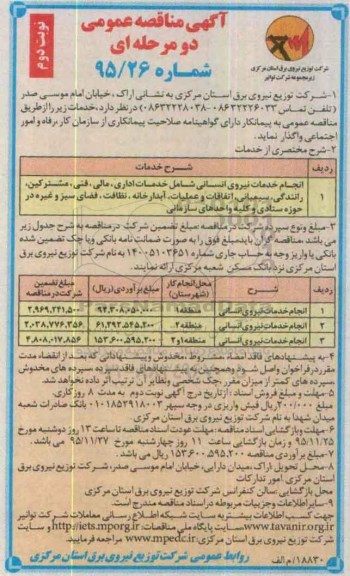 آگهی مناقصه عمومی
دو مرحله ای
شماره ۹۵/۲۶
نوبت دوم
شرکت توزیع نیروی برق استان مرکزی
زیرمجموعه شرکت توانیر
۱-شرکت توزیع نیروی برق استان مرکزی به نشانی اراک، خیابان امام موسی صدر
(تلفن تماس ۰۸۶۳۲۲۲۶۰۳۳-۰۸۶۳۲۲۲۸۰۳۸) در نظر دارد، خدمات زیر را از طریق
مناقصه عمومی به پیمانکار دارای گواهینامه صلاحیت پیمانکاری از سازمان کار، رفاه و امور
اجتماعی واگذار نماید.
۲-شرح مختصری از خدمات
ردیف شرح خدمات
۱ انجام خدمات نیروی انسانی شامل خدمات اداری، مالی، فنی، مشترکین،
رانندگی، سیمبانی، اتفاقات و عملیات، آبدارخانه، نظافت، فضای سبز و غیره در
حوزه ستادی و کلیه واحدهای سازمانی
۳-مبلغ و نوع سپرده شرکت در مناقصه: مبلغ تضمین شرکت در مناقصه به شرح جدول زیر
می باشد، مناقصه گران بایدمبلغ فوق را به صورت ضمانت نامه بانکی ویا چک تضمین شده
بانکی یا واریز وجه به حساب جاری شماره ۱۴۰۰۵۱۰۳۶۵۱ به نام شرکت توزیع نیروی برق
استان مرکزی نزد بانک مسکن شعبه مرکزی ارائه نمایند.
ردیف شرح خدمات محل انجام کار (شهرستان) مبلغ برآوردی (ریال) مبلغ تضمین شرکت در مناقصه
۱ انجام خدمات نیروی انسانی منطقه۱ ۹۲,۳۰۸,۰۵۰,۰۰۰ ۲,۹۶۹,۲۴۱,۵۰۰
۲ انجام خدمات نیروی انسانی منطقه۲ ۶۱,۲۹۲,۵۴۵,۲۰۰ ۲,۰۳۸,۷۷۶,۳۵۶
۳ انجام خدمات نیروی انسانی منطقه۱و۲ ۱۵۳,۶۰۰,۵۹۵,۲۰۰ ۴,۸۰۸,۰۱۷,۸۵۶
۴-به پیشنهادهای فاقد امضاء، مشروط، مخدوش و پیشنهاداتی که بعد از انقضاء مدت
مقرر در فراخوان واصل شود و همچنین به پیشنهادهای فاقد سپرده، سپرده های مخدوش
،سپرده های کمتر از میزان مقرر، چک شخصی و نظایر آن ترتیب اثر داده نخواهد شد.
۵-مهلت و مبلغ فروش اسناد: از تاریخ درج آگهی نوبت دوم به مدت ۸ روز کاری
مبلغ ۲۰۰/۰۰۰ریال فیش واریزی در وجه سپهر ۰۱۰۱۸۵۲۹۱۸۰۰۳ بانک صادرات شعبه
میدان شهدا به نام شرکت توزیع نیروی برق استان مرکزی.
۶-مهلت وبازگشایی اسناد مناقصه: مهلت عودت اسناد مناقصه تاساعت ۱۳ روز دوشنبه مورخ
۹۵/۱۱/۲۵ و زمان بازگشایی ساعت ۱۱ روز چهارشنبه مورخ ۹۵/۱۱/۲۷ می باشد.
۷-مبلغ برآوردی مناقصه ۱۵۳,۶۰۰,۵۹۵,۲۰۰ ریال می باشد.
۸-محل تحویل اراک، میدان دارایی، خیابان امام موسی صدر، شرکت توزیع نیروی برق
استان مرکزی امور تدارکات
محل بازگشایی سالن کنفرانس شرکت توزیع نیروی برق استان مرکزی
۹-سایر اطلاعات و جزییات مربوطه در اسناد مناقصه مندرج است.
جهت کسب اطلاعات بیشتر به سایت شبکه اطلاع رسانی معاملات شرکت توانیر
www.tavanir.org.ir، سایت پایگاه ملی مناقصات: http://iets.mporg.ir و سایت
شرکت توزیع نیروی برق استان مرکزی: www.mpedc.ir مراجعه فرمایید.
۱۸۸۳۰/م الف
روابط عمومی شرکت توزیع نیروی برق استان مرکزی